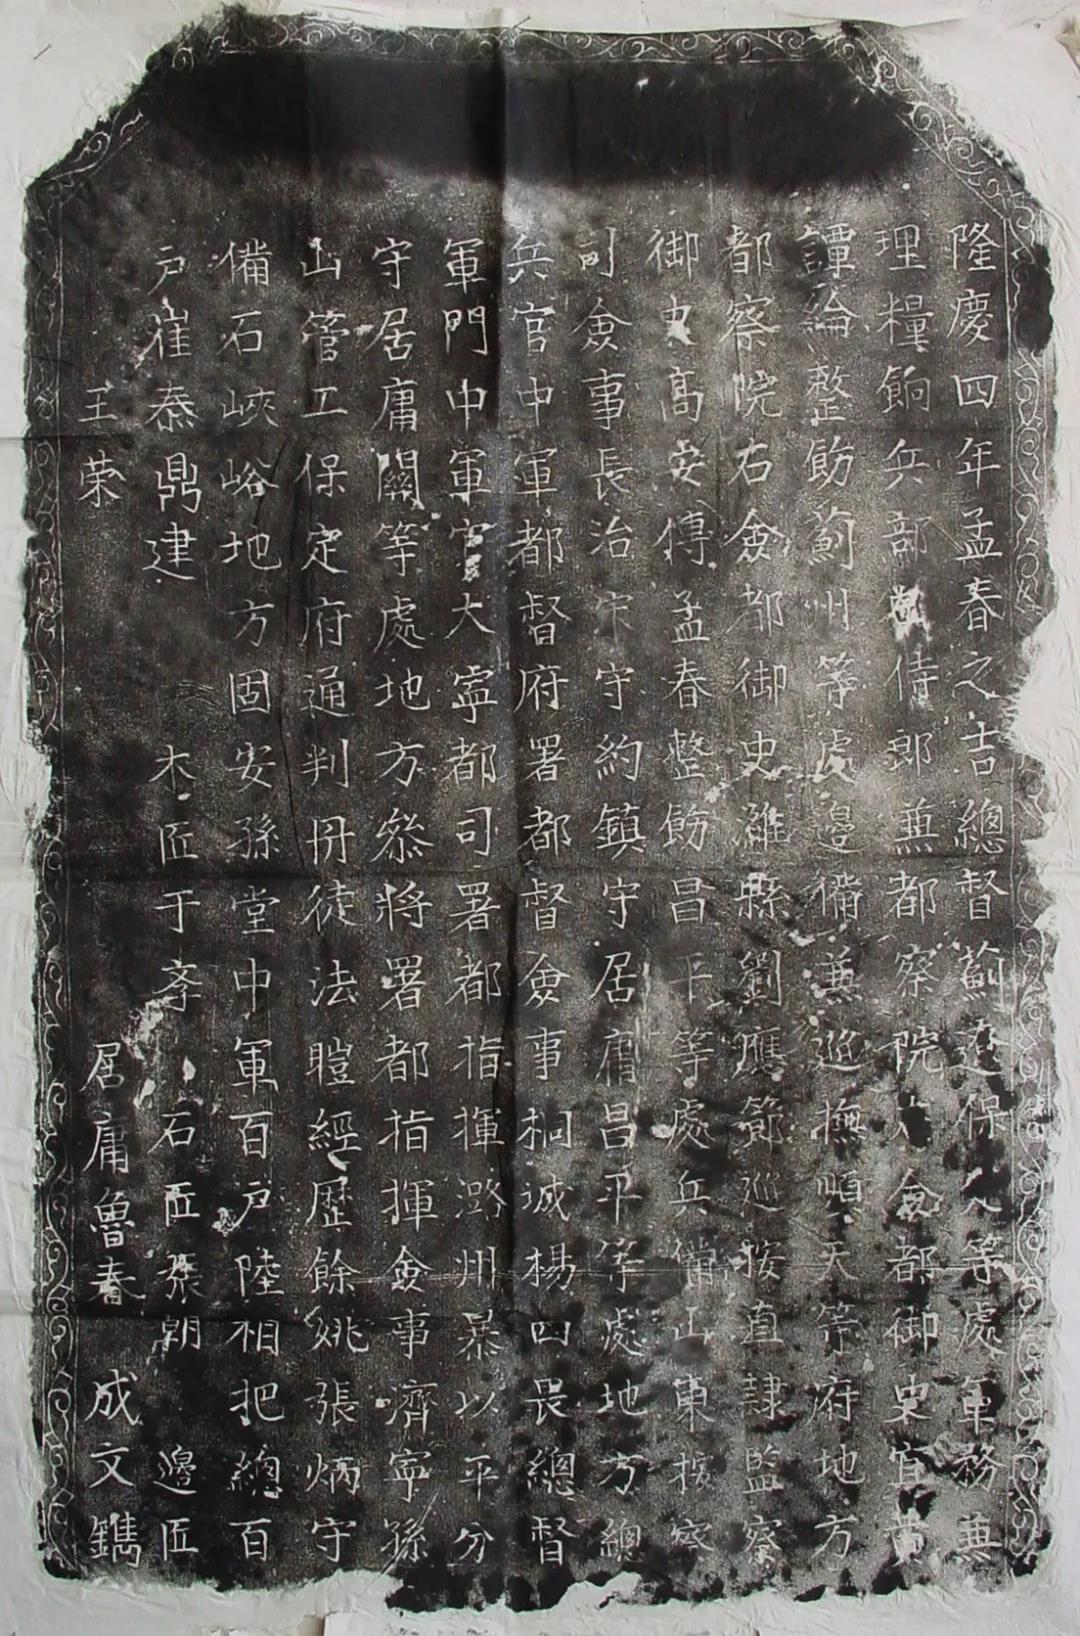 隆慶四年孟春之吉總督薊遼保定等處軍務兼
理糧餉兵部侍郎兼都察院右僉都御史宜黃
譚綸整飭薊州等處邊備兼巡撫順天等府地方
都察院右僉都御史濰縣劉應節巡按直隷監察
御史高安傅孟春整飭昌平等處兵備山東按察
司僉事長治宋守約鎮守居庸昌平等處地方總
兵官中軍都督府署都督僉事桐城楊四畏總督
軍門中軍官大寧都司署都指揮潞州暴以平分
守居庸關等處地方叅將署都指揮僉事濟寧孫
山管工保定府通判丹徒法暟經歷餘姚張炳守
備石峽峪地方固安孫堂中軍百戶陸相把總百
戶崔泰鼎建 木匠于孝 石匠張朝 邊匠
王荣 居庸魯春 成文鐫